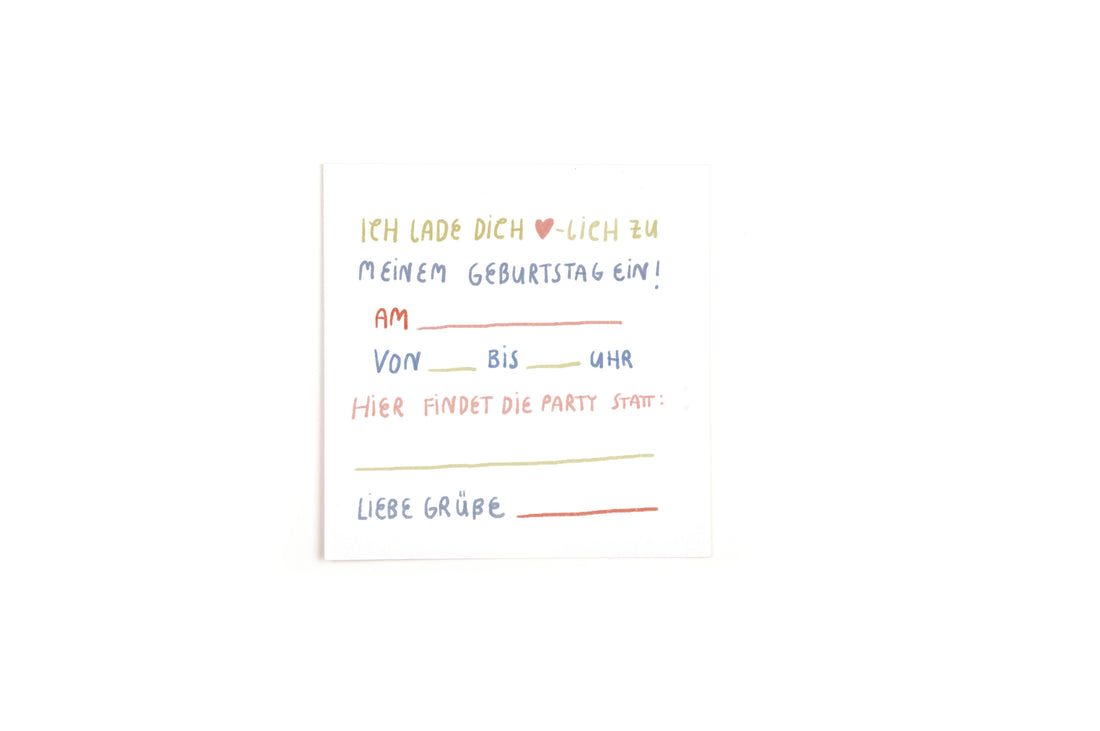 ICH LADE DICH ♥-LICH ZU
MEINEM GEBURTSTAG EIN!
AM
VON ___ BIS ___ UHR
HIER FINDET DIE PARTY STATT:
LIEBE GRÜßE